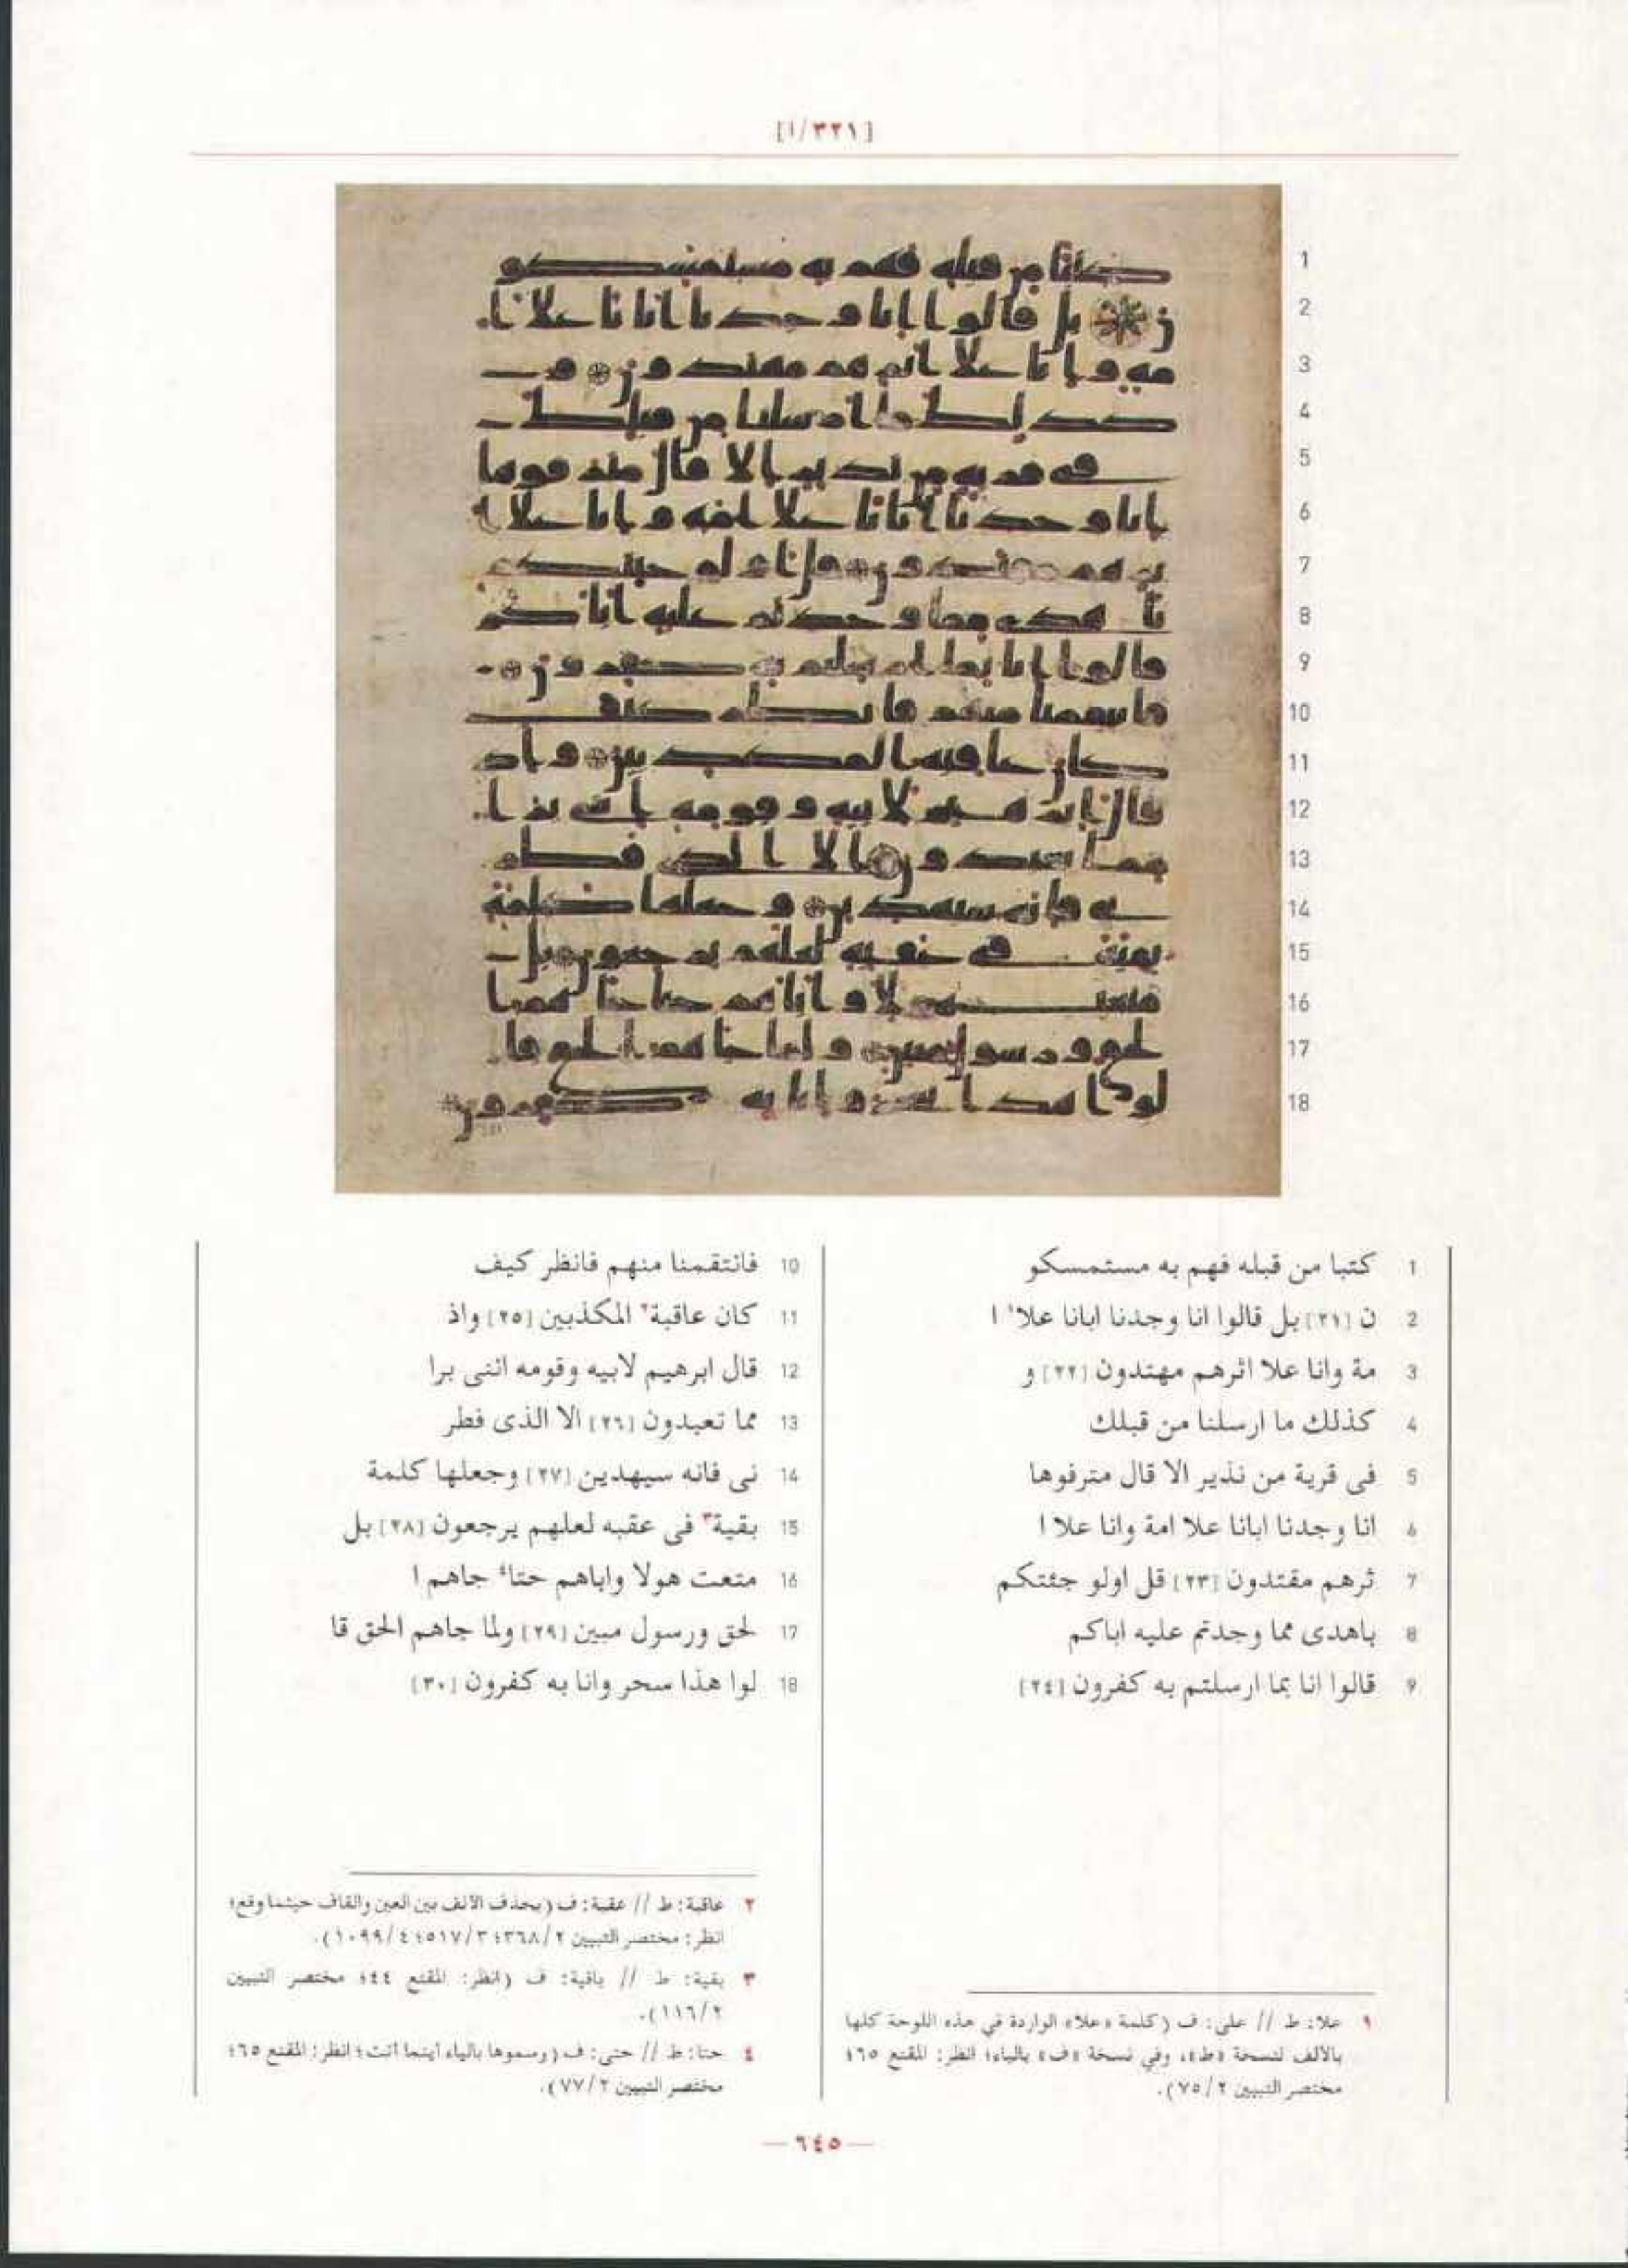 [١/٣٢١]
1 كتبا من قبله فهم به مستمسكو
2 ن [٢١] بل قالوا انا وجدنا ابانا علا١ ا
3 مة وانا علا اثرهم مهتدون [٢٢] و
4 كذلك ما ارسلنا من قبلك
5 فى قرية من نذير الا قال مترفوها
6 انا وجدنا ابانا علا امة وانا علا ا
7 ثرهم مقتدون [٢٣] قل اولو جئتكم
8 باهدى مما وجدتم عليه اباكم
9 قالوا انا بما ارسلتم به كفرون [٢٤]
10 فانتقمنا منهم فانظر كيف
11 كان عاقبة٢ المكذبين [٢٥] واذ
12 قال ابرهيم لابيه وقومه اننى برا
13 مما تعبدون [٢٦] الا الذى فطر
14 نى فانه سيهدين [٢٧] وجعلها كلمة
15 بقية٣ فى عقبه لعلهم يرجعون [٢٨] بل
16 متعت هولا واباهم حتا٤ جاهم ا
17 لحق ورسول مبين [٢٩] ولما جاهم الحق قا
18 لوا هذا سحر وانا به كفرون [٣٠]
١ علا: ط // على: ف (كلمة «علا» الواردة في هذه اللوحة كلها
بالألف لنسخة «ط»، وفي نسخة «ف» بالياء؛ انظر: المقنع ٦٥؛
مختصر التبيين ٧٥/٢).
٢ عاقبة: ط // عقبة: ف (بحذف الألف بين العين والقاف حيثما وقع؛
انظر: مختصر التبيين ٣٦٨/٢؛ ٥١٧/٣؛ ١٠٩٩/٤).
٣ بقية: ط // باقية: ف (انظر: المقنع ٤٤؛ مختصر التبيين
١١٦/٢).
٤ حتا: ط // حتى: ف (رسموها بالياء أينما أتت؛ انظر: المقنع ٦٥؛
مختصر التبيين ٧٧/٢).
— ٦٤٥ —